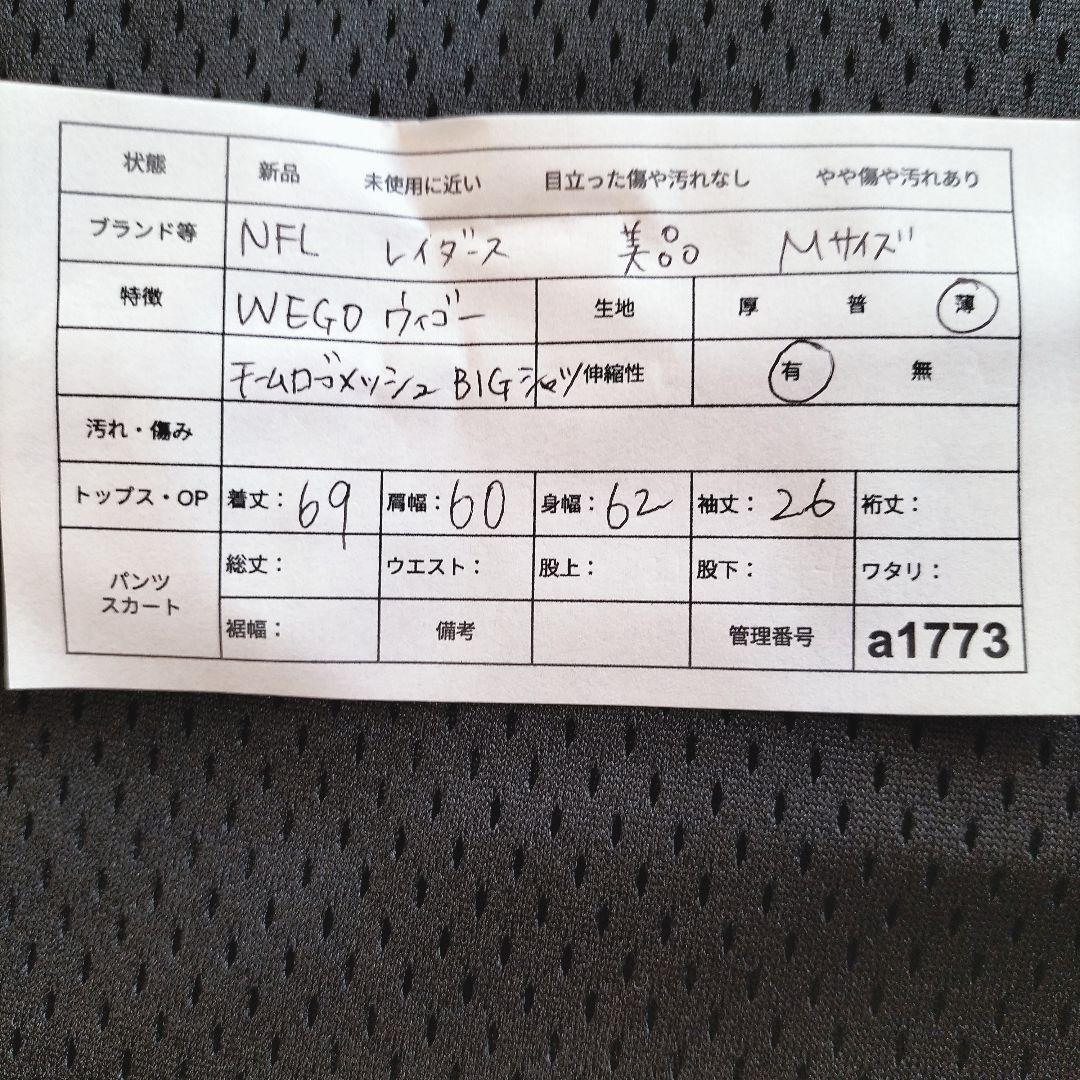 状態 新品 未使用に近い 目立った傷や汚れなし やや傷や汚れあり
ブランド等 NFL レイダース 美品 Mサイズ
特徴 WEGO ウィゴー 生地 厚 普 薄
チームロゴメッシュ BIGシャツ 伸縮性 有 無
汚れ・傷み
トップス・OP 着丈：69 肩幅：60 身幅：62 袖丈：26 裄丈：
パンツ スカート 総丈： ウエスト： 股上： 股下： ワタリ：
裾幅： 備考 管理番号 a1773